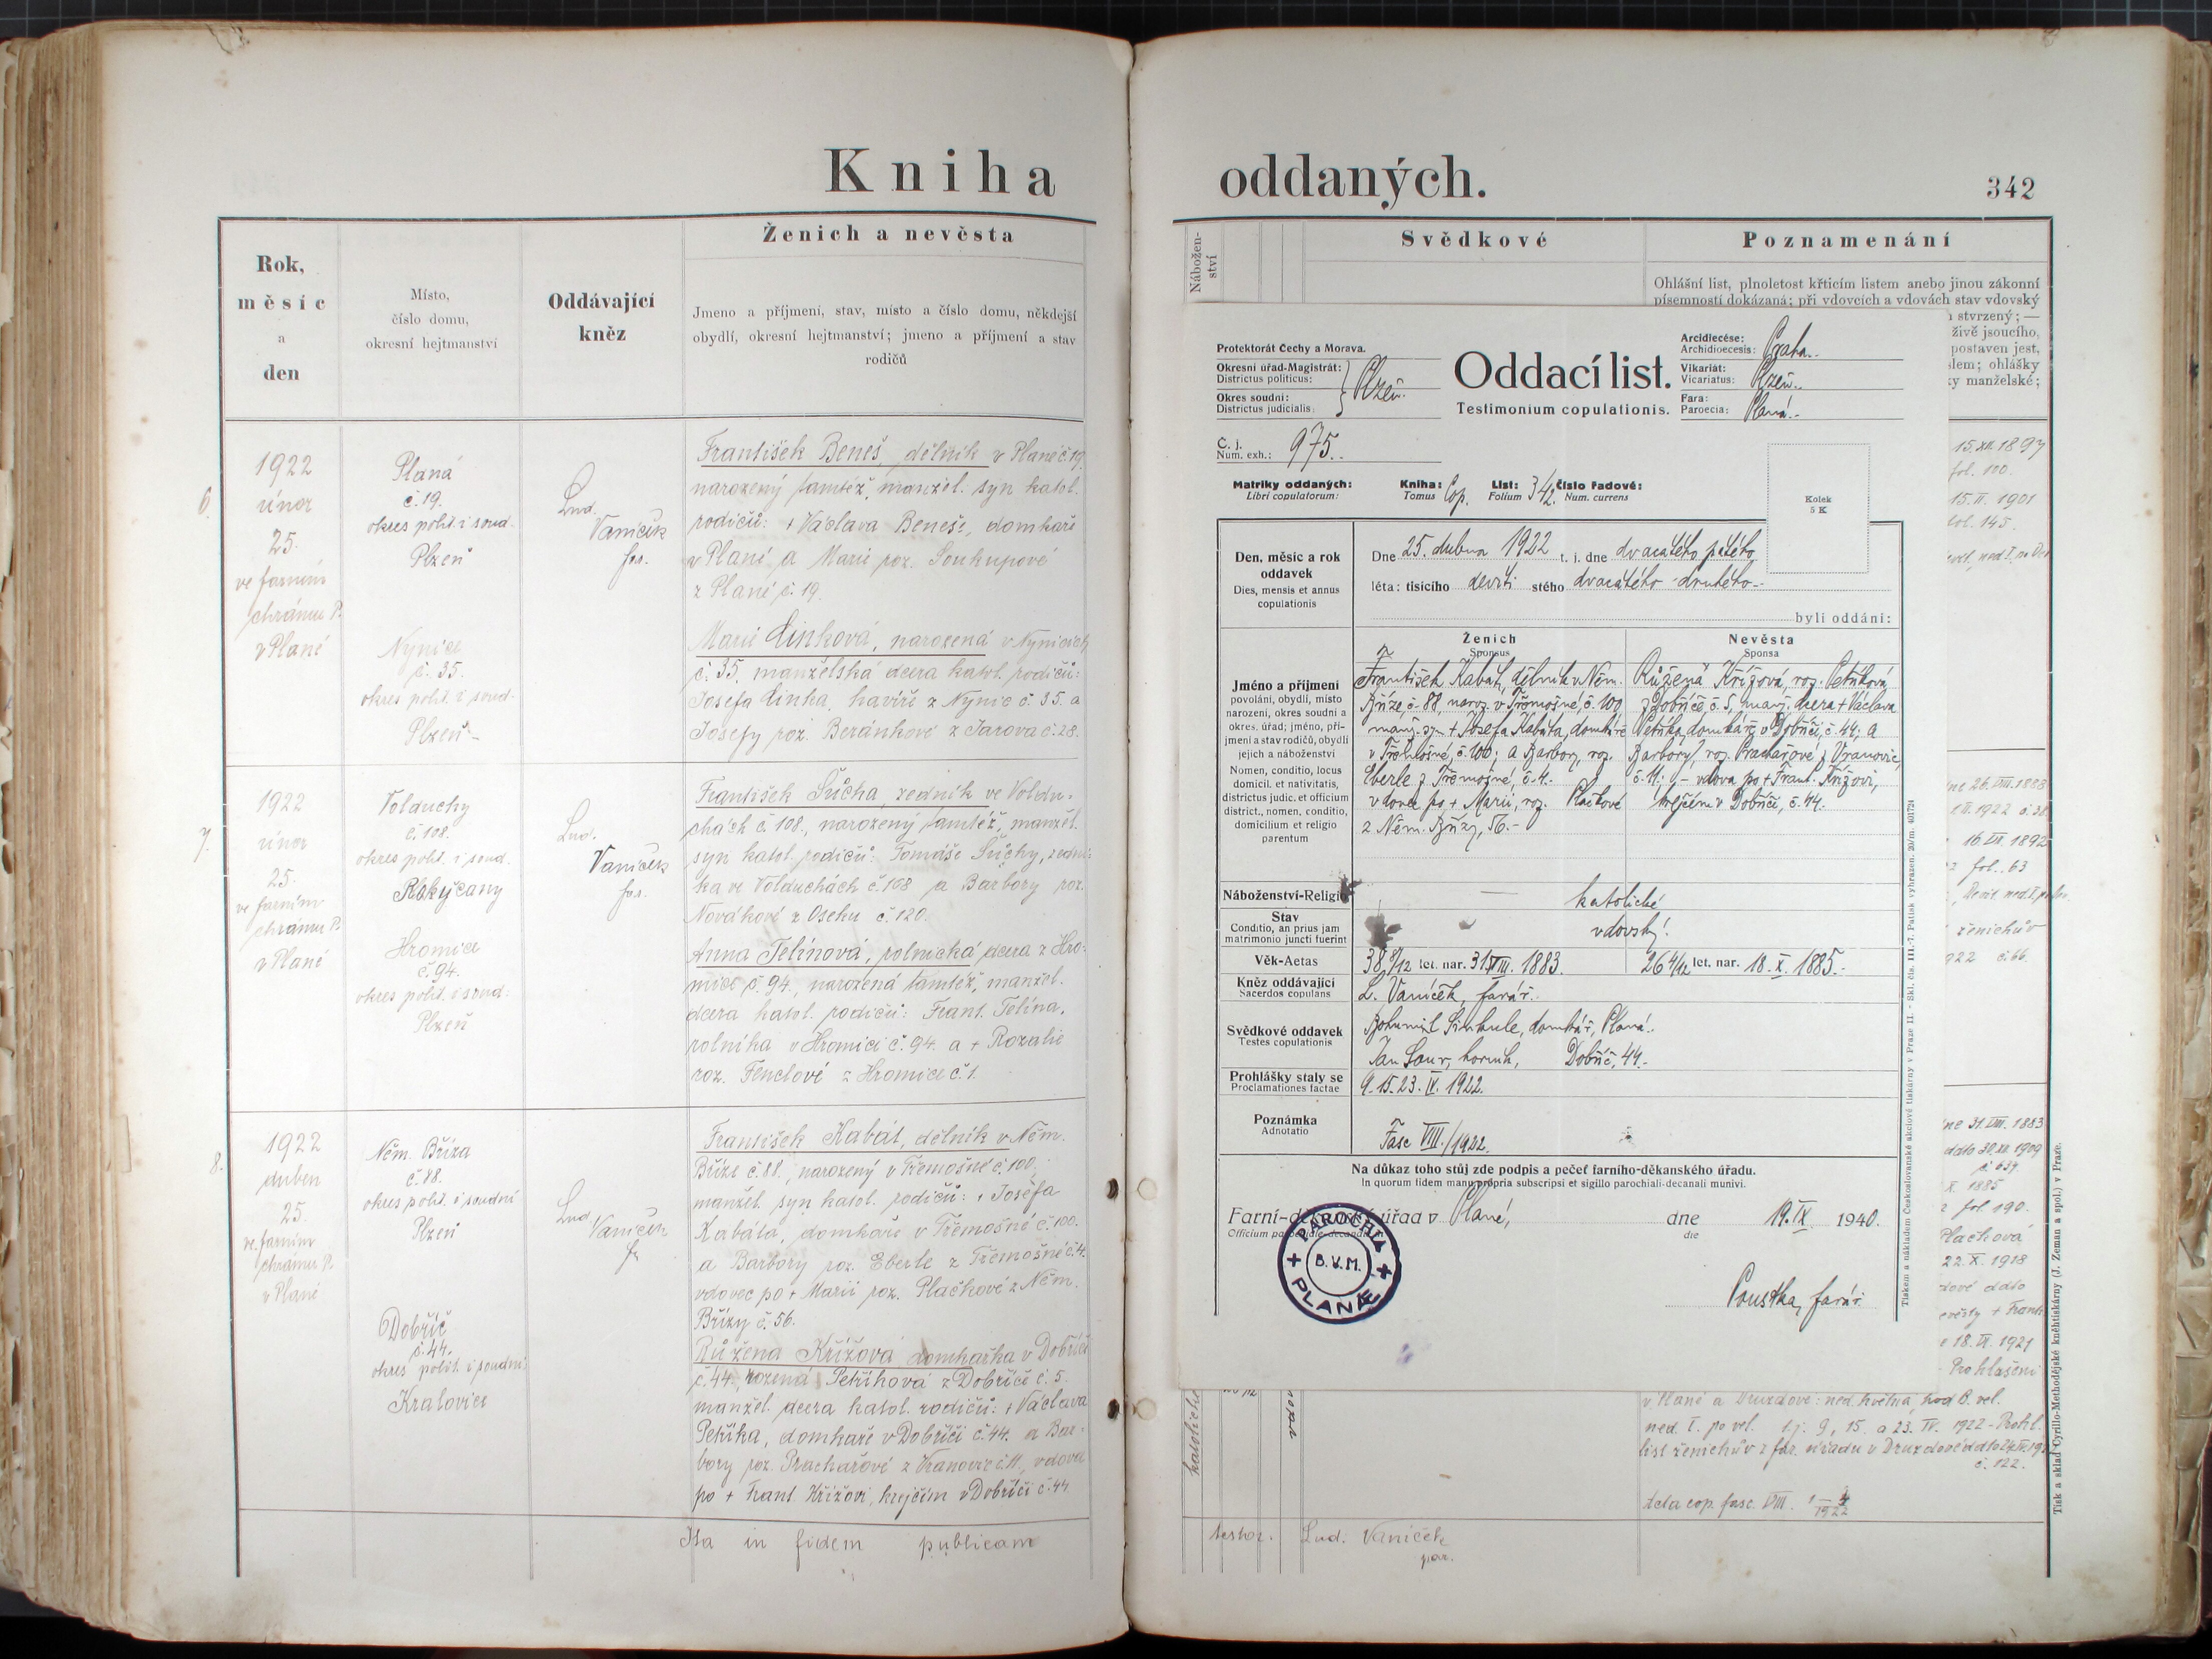 Kniha
Rok,
měsíc
a
den
Místo,
číslo domu,
okresní hejtmanství
Oddávající
kněz
Ženich a nevěsta
Jmeno a příjmení, stav, místo a číslo domu, někdejší
obydlí, okresní hejtmanství; jmeno a příjmení a stav
rodičů
6.
1922
únor
25.
ve farním
chrámu P.
v Plané
Planá
č. 19.
okres polit. i soud.
Plzeň
Nýnice
č. 35.
okres polit. i soud.
Plzeň
Lud.
Vaníček
far.
František Beneš, dělník v Plané č. 19.
narozený tamtéž, manžel. syn katol.
rodičů: + Václava Beneše, domkáře
v Plané, a Marie roz. Soukupové
z Plané č. 19.
Marie Cinková, narozená v Nýnicích
č. 35. manželská dcera katol. rodičů:
Josefa Cinka, havíře z Nýnic č. 35. a
Josefy roz. Beránkové z Jarova č. 28.
7.
1922
únor
25.
ve farním
chrámu P.
v Plané
Volduchy
č. 108.
okres polit. i soud.
Rokycany
Hromice
č. 94.
okres polit. i soud.
Plzeň
Lud.
Vaníček
far.
František Šůcha, zedník ve Voldu-
chách č. 108., narozený tamtéž, manžel.
syn katol. rodičů: Tomáše Šůchy, zední-
ka ve Volduchách č. 108 a Barbory roz.
Novákové z Oseku č. 120.
Anna Telínová, rolnická dcera z Hro-
mice č. 94., narozená tamtéž, manžel.
dcera katol. rodičů: Frant. Telína,
rolníka v Hromici č. 94. a + Rozalie
roz. Fenclové z Hromice č. 1.
8.
1922
duben
25.
ve farním
chrámu P.
v Plané
Něm. Bříza
č. 88.
okres polit. i soudní
Plzeň
Dobříč
č. 44.
okres polit. i soudní
Kralovice
Lud.
Vaníček
far.
František Kabát, dělník v Něm.
Bříze č. 88., narozený v Třemošné č. 100.
manžel. syn katol. rodičů: + Josefa
Kabáta, domkáře v Třemošné č. 100.
a Barbory roz. Eberle z Třemošné č. 4.
vdovec po + Marii roz. Plačkové z Něm.
Břízy č. 56.
Růžena Křížová domkářka v Dobříči
č. 44., rozená Petříková z Dobříče č. 5.
manžel. dcera katol. rodičů: + Václava
Petříka, domkáře v Dobříči č. 44. a Bar-
bory roz. Prachařové z Vranovic č. 11, vdova
po + Frant. Křížovi, krejčím v Dobříči č. 44
Ita in fidem publicam
oddaných.
342
Nábožen-
ství
Svědkové
Poznamenání
Ohlášní list, plnoletost křticím listem anebo jinou zákonní
písemností dokázaná; při vdovcích a vdovách stav vdovský
stvrzený; —
živě jsoucího,
postaven jest,
slem; ohlášky
ky manželské;
15. XII. 1897
fol. 100.
15. II. 1901
fol. 145.
26. VIII. 1883
II. 1922
16. VII. 1892
fol. 63
ženichův
922 č. 66.
Protektorát Čechy a Morava.
Okresní úřad-Magistrát:
Districtus politicus:
Okres soudní:
Districtus judicialis:
Plzeň.
Oddací list.
Testimonium copulationis.
Arcidiecése:
Archidioecesis:
Praha.
Vikariát:
Vicariatus:
Plzeň.
Fara:
Paroecia:
Planá.-
Č. j.
Num. exh.:
975.
Kolek
5 K
Matriky oddaných:
Libri copulatorum:
Kniha:
Tomus
Cop.
List:
Folium
342.
Číslo řadové:
Num. currens
Den, měsíc a rok
oddavek
Dies, mensis et annus
copulationis
Dne 25. dubna 1922 t. j. dne dvacátého pátého
léta: tisícího devíti stého dvacátého druhého.-
byli oddáni:
Jméno a příjmení
povolání, obydlí, místo
narození, okres soudní a
okres. úřad; jméno, pří-
jmení a stav rodičů, obydlí
jejich a náboženství
Nomen, conditio, locus
domicil. et nativitatis,
districtus judic. et officium
district., nomen, conditio,
domicilium et religio
parentum
Ženich
Sponsus
František Kabát, dělník v Něm.
Bříze, č. 88, naroz. v Třemošné, č. 100
manž. syn + Josefa Kabáta, domkáře
v Třemošné, č. 100; a Barbory, roz.
Eberle z Třemošné, č. 4.
vdovec po + Marii, roz. Plačkové
z Něm. Břízy, 56.-
Nevěsta
Sponsa
Růžena Křížová, roz. Petříková
z Dobříče, č. 5, manž. dcera + Václava
Petříka, domkáře v Dobříči, č. 44; a
Barbory, roz. Prachařové z Vranovic,
č. 11; - vdova po + Frant. Křížovi,
krejčím v Dobříči, č. 44.-
Náboženství-Religio
katolické
Stav
Conditio, an prius jam
matrimonio juncti fuerint
vdovský.
Věk-Aetas
38 8/12 let. nar. 31. VIII. 1883.
26 4/12 let, nar. 18. X. 1885.-
Kněz oddávající
Sacerdos copulans
L. Vaníček, farář.
Svědkové oddavek
Testes copulationis
Bohumil Sinkule, domkář, Planá.
Jan Saur, horník, Dobříč, 44.-
Prohlášky staly se
Proclamationes factae
9. 15. 23. IV. 1922.
Poznámka
Adnotatio
Fasc VIII./1922.
Na důkaz toho stůj zde podpis a pečeť farního-děkanského úřadu.
In quorum fidem manu propria subscripsi et sigillo parochiali-decanali munivi.
Farní-děkanský úřad v Plané,
Officium parochiale-decanale in
dne
die
19. IX 1940.
PAROCHIA
B.V.M.
PLANÆ
Poustka, farář.
Tiskem a nákladem Československé akciové tiskárny v Praze II. - Skl. čís. III.-7. Patisk vyhrazen. 20/m. 401724
31. VIII. 1883
ddto 30. XI. 1909
č. 639
X. 1885
fol 190.
Plachová
22. X. 1918
dové ddto
nevěsty + Frant.
18. IX. 1921
Prohlášeni
v Plané a Druzdově: ned. květná, pod B. vel.
ned. I. po vel. t.j. 9, 15. a 23. IV. 1922 - Prohl.
list ženichův z far. úřadu v Druzdově
č. 122.
acta cop. fasc. VIII.
katolické
testor. Lud. Vaníček
par.
Tisk a sklad Cyrillo-Methodějské knihtiskárny (J. Zeman a spol.) v Praze.